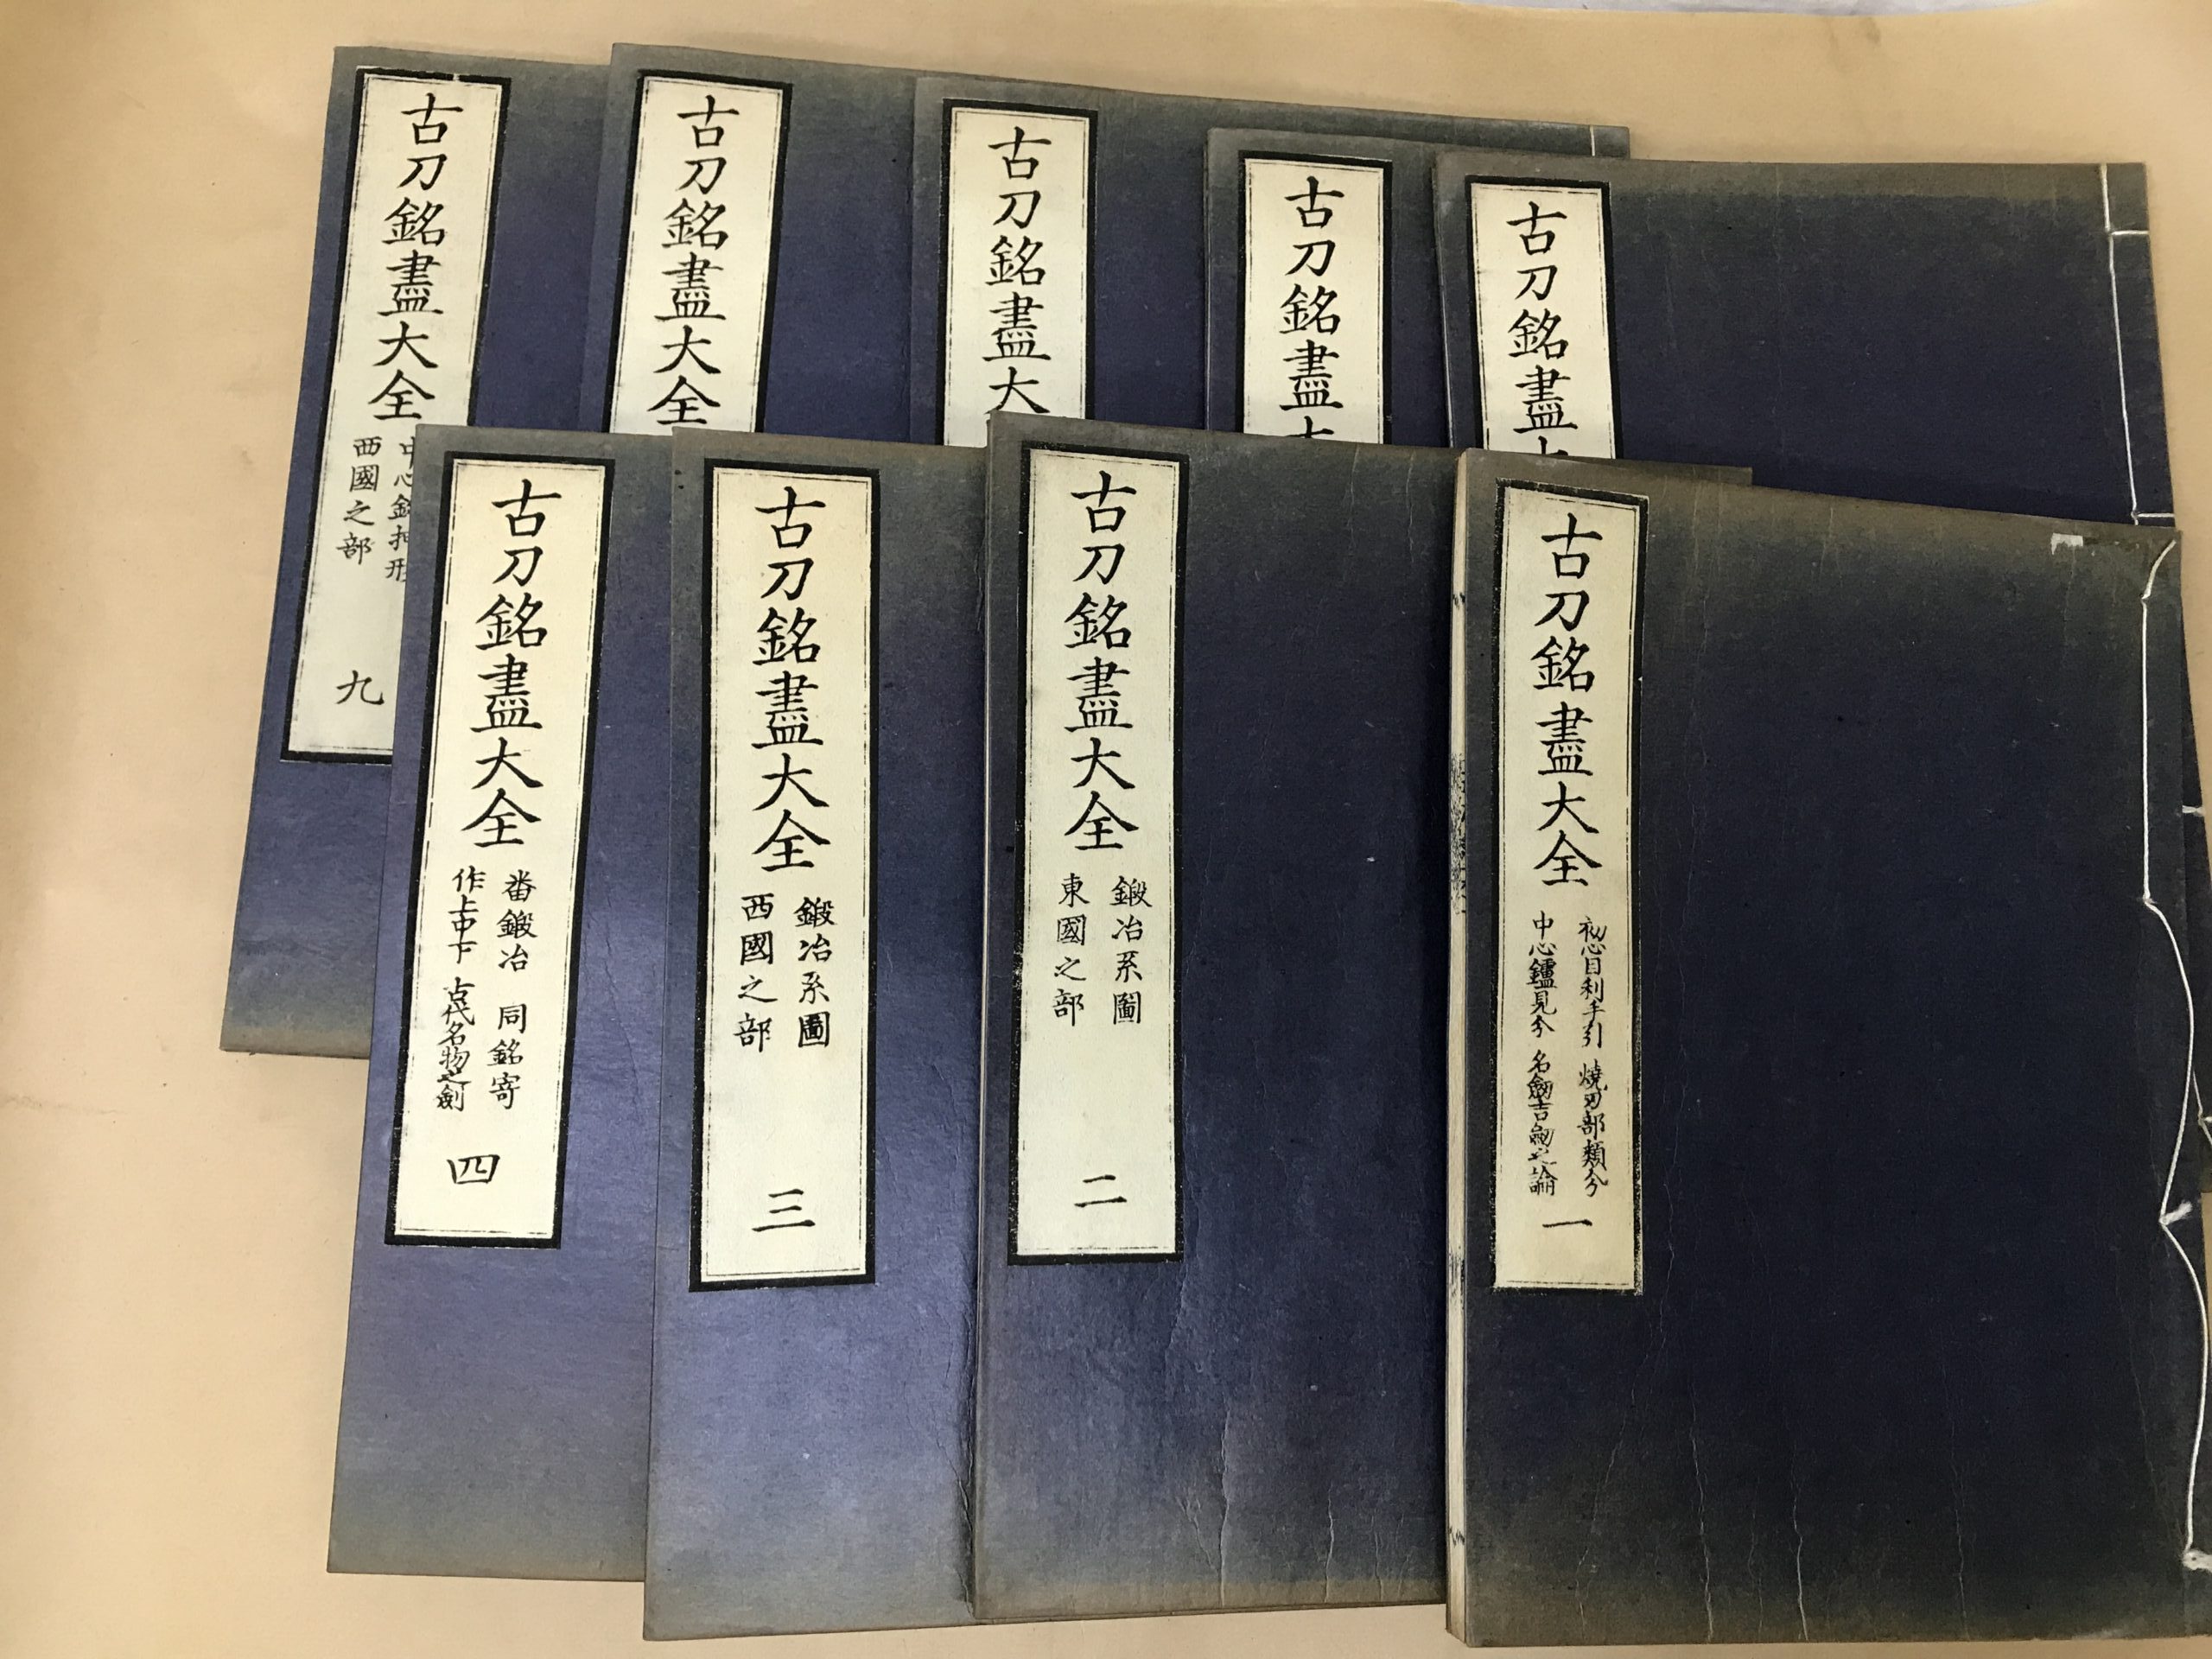 古刀銘盡大全
中心銘押形
西國之部
九
古刀銘盡大全
古刀銘盡大
古刀銘盡大
古刀銘盡大
古刀銘盡大全
番鍛冶 同銘寄
作上中下 古代名物之劍
四
古刀銘盡大全
鍛冶系圖
西國之部
三
古刀銘盡大全
鍛冶系圖
東國之部
二
古刀銘盡大全
初心目利手引 燒刃部類分
中心鑢見分 名劔吉劔之論
一